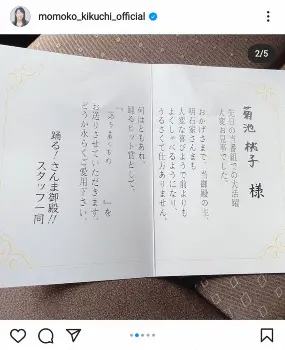 momoko_kikuchi_official
2/5
菊池 桃子 様
先日の当番組での大活躍
大変お見事でした。
おかげさまで、当御殿の主、
明石家さんまも
大変な喜びようで前よりも
よくしゃべるようになり、
うるさくて仕方ありません。
何はともあれ、
踊るヒット賞として、
を
お送りさせていただきます。
どうか末らくご愛用下さい。
踊る!さんま御殿!!
スタッフ一同